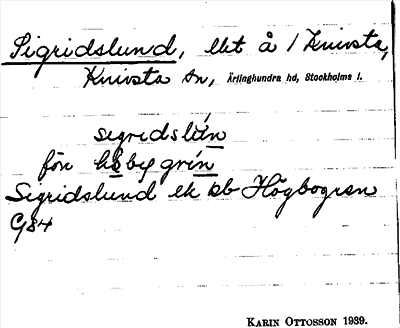 Sigridslund, lht å 1 Knivsta,
Knivsta sn, Ärlinghundra hd, Stockholms l.
sigridslún
för
Sigridslund ek kb Högbogren
G84
KARIN OTTOSSON 1939.